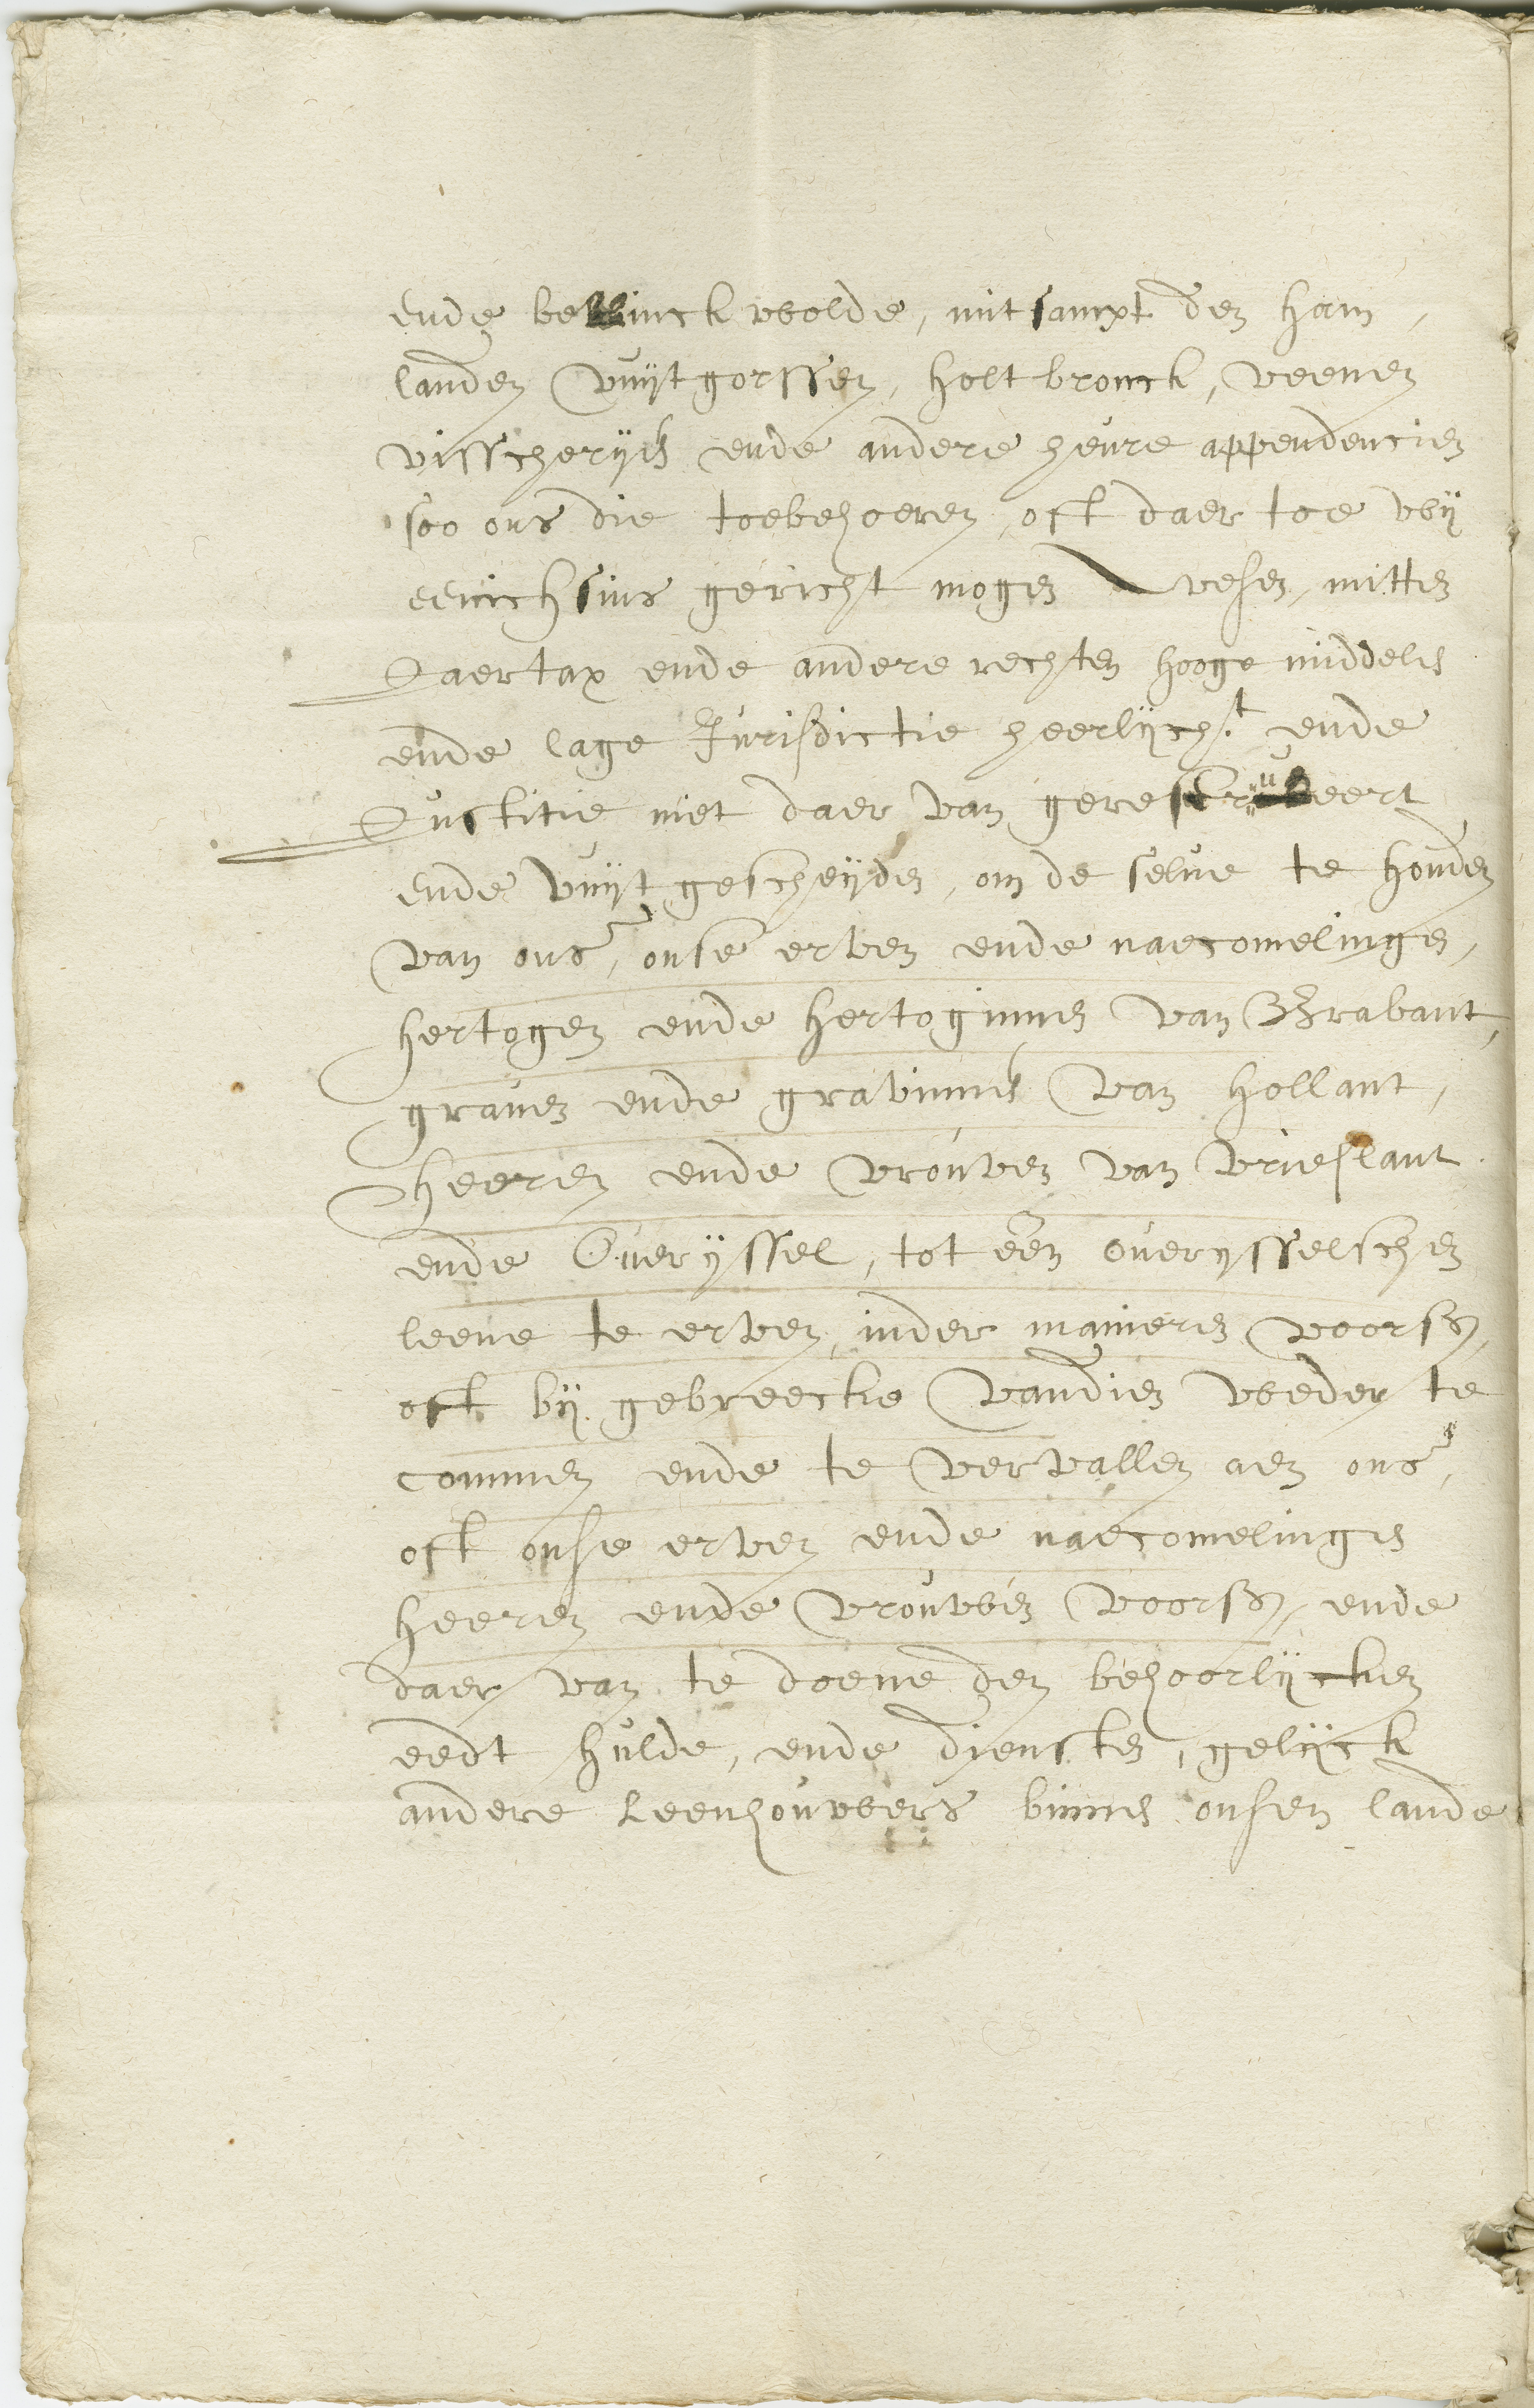 ende bellinckwolde, mitsampt den ham,
landen vuytgorssen, holtbrouck, veenen
visscheryen ende andere heure appendencien
soo ons die toebehoeren, oft daer toe wij
eenichsins gericht mogen wesen, mitten
Jaertax ende andere rechten hooge middele
ende lage Jurisdictie heerlijcht ende
Justitie niet daer van gereserveert
ende vuytgescheyden, om de selue te houden
van ons, onse erven ende naecomelingen,
hertogen ende hertoginnen van Brabant,
grauen ende gravinnen van hollant,
heeren ende vrouwen van vrieslant
ende Ouerijssel, tot een ouerysselschen
leene te erven, inder manieren voors.
oft bij gebreecke vandien weder te
commen ende te vervallen aen ons,
oft onse erven ende naecomelingen
heeren ende vrouwen voors. ende
daer van te doene den behoorlijcken
eedt hulde, ende diensten, gelijck
andere leenhouwers binnen onsen lande